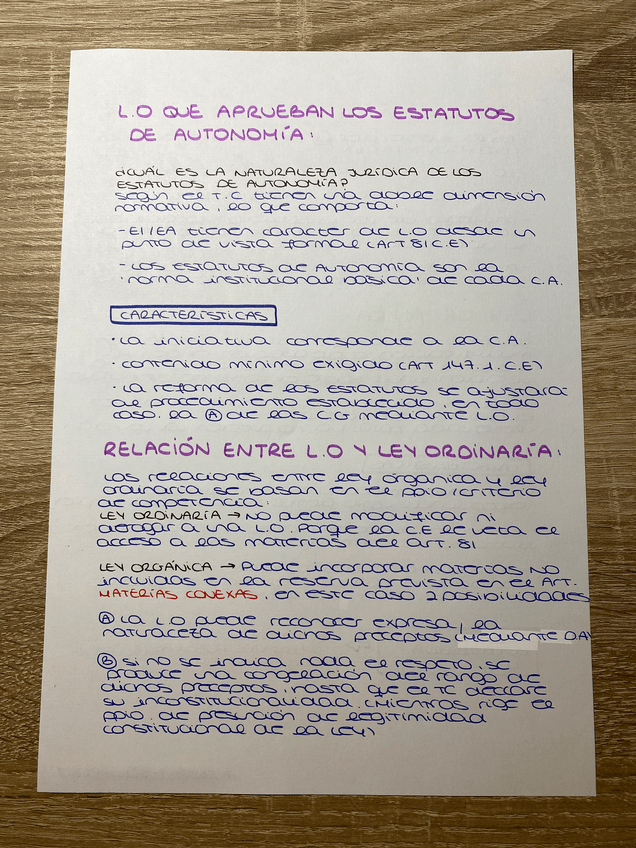 L.O QUE APRUEBAN LOS ESTATUTOS
DE AUTONOMÍA:
¿CUÁL ES LA NATURALEZA JURÍDICA DE LOS
ESTATUTOS DE AUTONOMÍA?
según el T.C tienen una doble dimensión
normativa, lo que comporta:
- El/EA tienen carácter de L.O desde un
punto de vista formal (ART 81 C.E)
- Los ESTATUTOS de AUTONOMÍA son la
"norma institucional básica" de cada C.A.
CARACTERÍSTICAS
· La iniciativa corresponde a la C.A.
· contenido mínimo exigido (ART 147.1. C.E)
· La reforma de los ESTATUTOS se ajustará
al procedimiento establecido, en todo
caso, la Ⓐ de las CG mediante L.O.
RELACIÓN ENTRE L.O Y LEY ORDINARÍA:
Las relaciones entre ley orgánica y ley
ordinaria se basan en el ppio/criterio
de competencia:
LEY ORDINARÍA → No puede modificar ni
derogar a una L.O. Porque la C.E le veta el
acceso a las materias del art. 81
LEY ORGÁNICA → Puede incorporar materias NO
incluidas en la reserva prevista en el ART.
MATERÍAS CONEXAS, en este caso 2 posibilidades
Ⓐ La L.O puede reconocer expresa, la
naturaleza de dichos preceptos (MEDIANTE D.A
Ⓑ si no se indica nada el respeto, se
produce una congelación del rango de
dichos preceptos, hasta que el TC declare
su inconstitucionalidad. (Mientras rige el
ppio. de presunción de legitimidad
constitucional de la LEY)